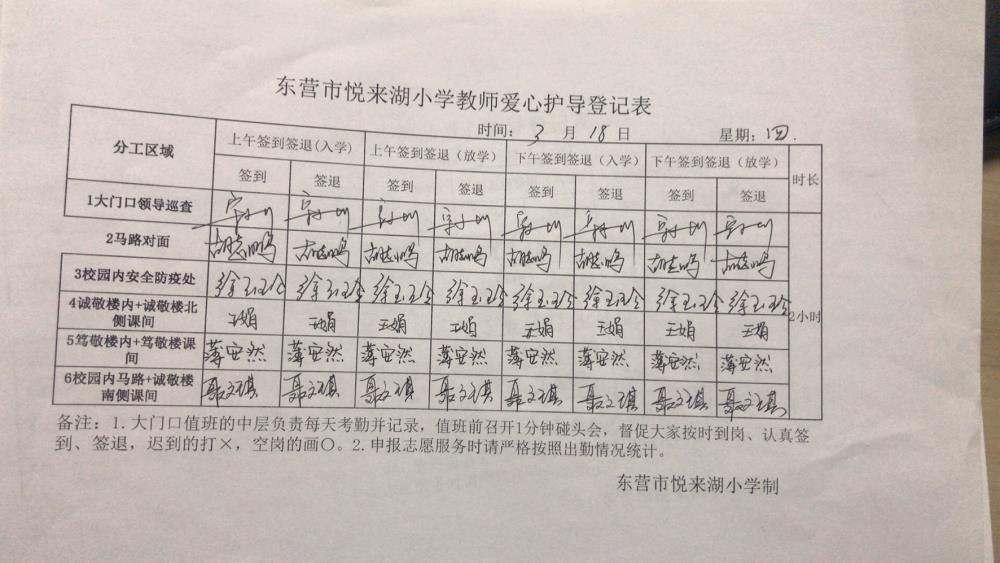 东营市悦来湖小学教师爱心护导登记表
时间：3月18日 星期：四.
分工区域 上午签到签退(入学) 上午签到签退（放学） 下午签到签退（入学） 下午签到签退（放学） 时长
签到 签退 签到 签退 签到 签退 签到 签退
1大门口领导巡查
2马路对面 胡志鸣 胡志鸣 胡志鸣 胡志鸣 胡志鸣 胡志鸣 胡志鸣 胡志鸣
3校园内安全防疫处 徐玉玲 徐玉玲 徐玉玲 徐玉玲 徐玉玲 徐玉玲 徐玉玲 徐玉玲
4诚敬楼内+诚敬楼北
侧课间 王娟 王娟 王娟 王娟 王娟 王娟 王娟 王娟 2小时
5笃敬楼内+笃敬楼课
间 薄安然 薄安然 薄安然 薄安然 薄安然 薄安然 薄安然 薄安然
6校园内马路+诚敬楼
南侧课间 聂文琪 聂文琪 聂文琪 聂文琪 聂文琪 聂文琪 聂文琪 聂文琪
备注：1.大门口值班的中层负责每天考勤并记录，值班前召开1分钟碰头会，督促大家按时到岗、认真签
到、签退，迟到的打×，空岗的画〇。2.申报志愿服务时请严格按照出勤情况统计。
东营市悦来湖小学制